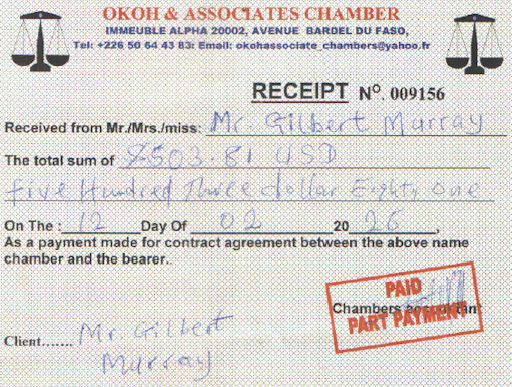 OKOH & ASSOCIATES CHAMBER
IMMEUBLE ALPHA 20002, AVENUE BARDEL DU FASO,
Tel: +226 50 64 43 83: Email: okohassociate_chambers@yahoo.fr
RECEIPT No. 009156
Received from Mr./Mrs./miss: Mr. Gilbert Murray
The total sum of $503.81 USD
five Hundred Three dollar Eighty one
On The : 12 Day Of 02 2026,
As a payment made for contract agreement between the above name
chamber and the bearer..
PAID
Chambers accountant
PART PAYMENT
Client....... Mr. Gilbert
Murray